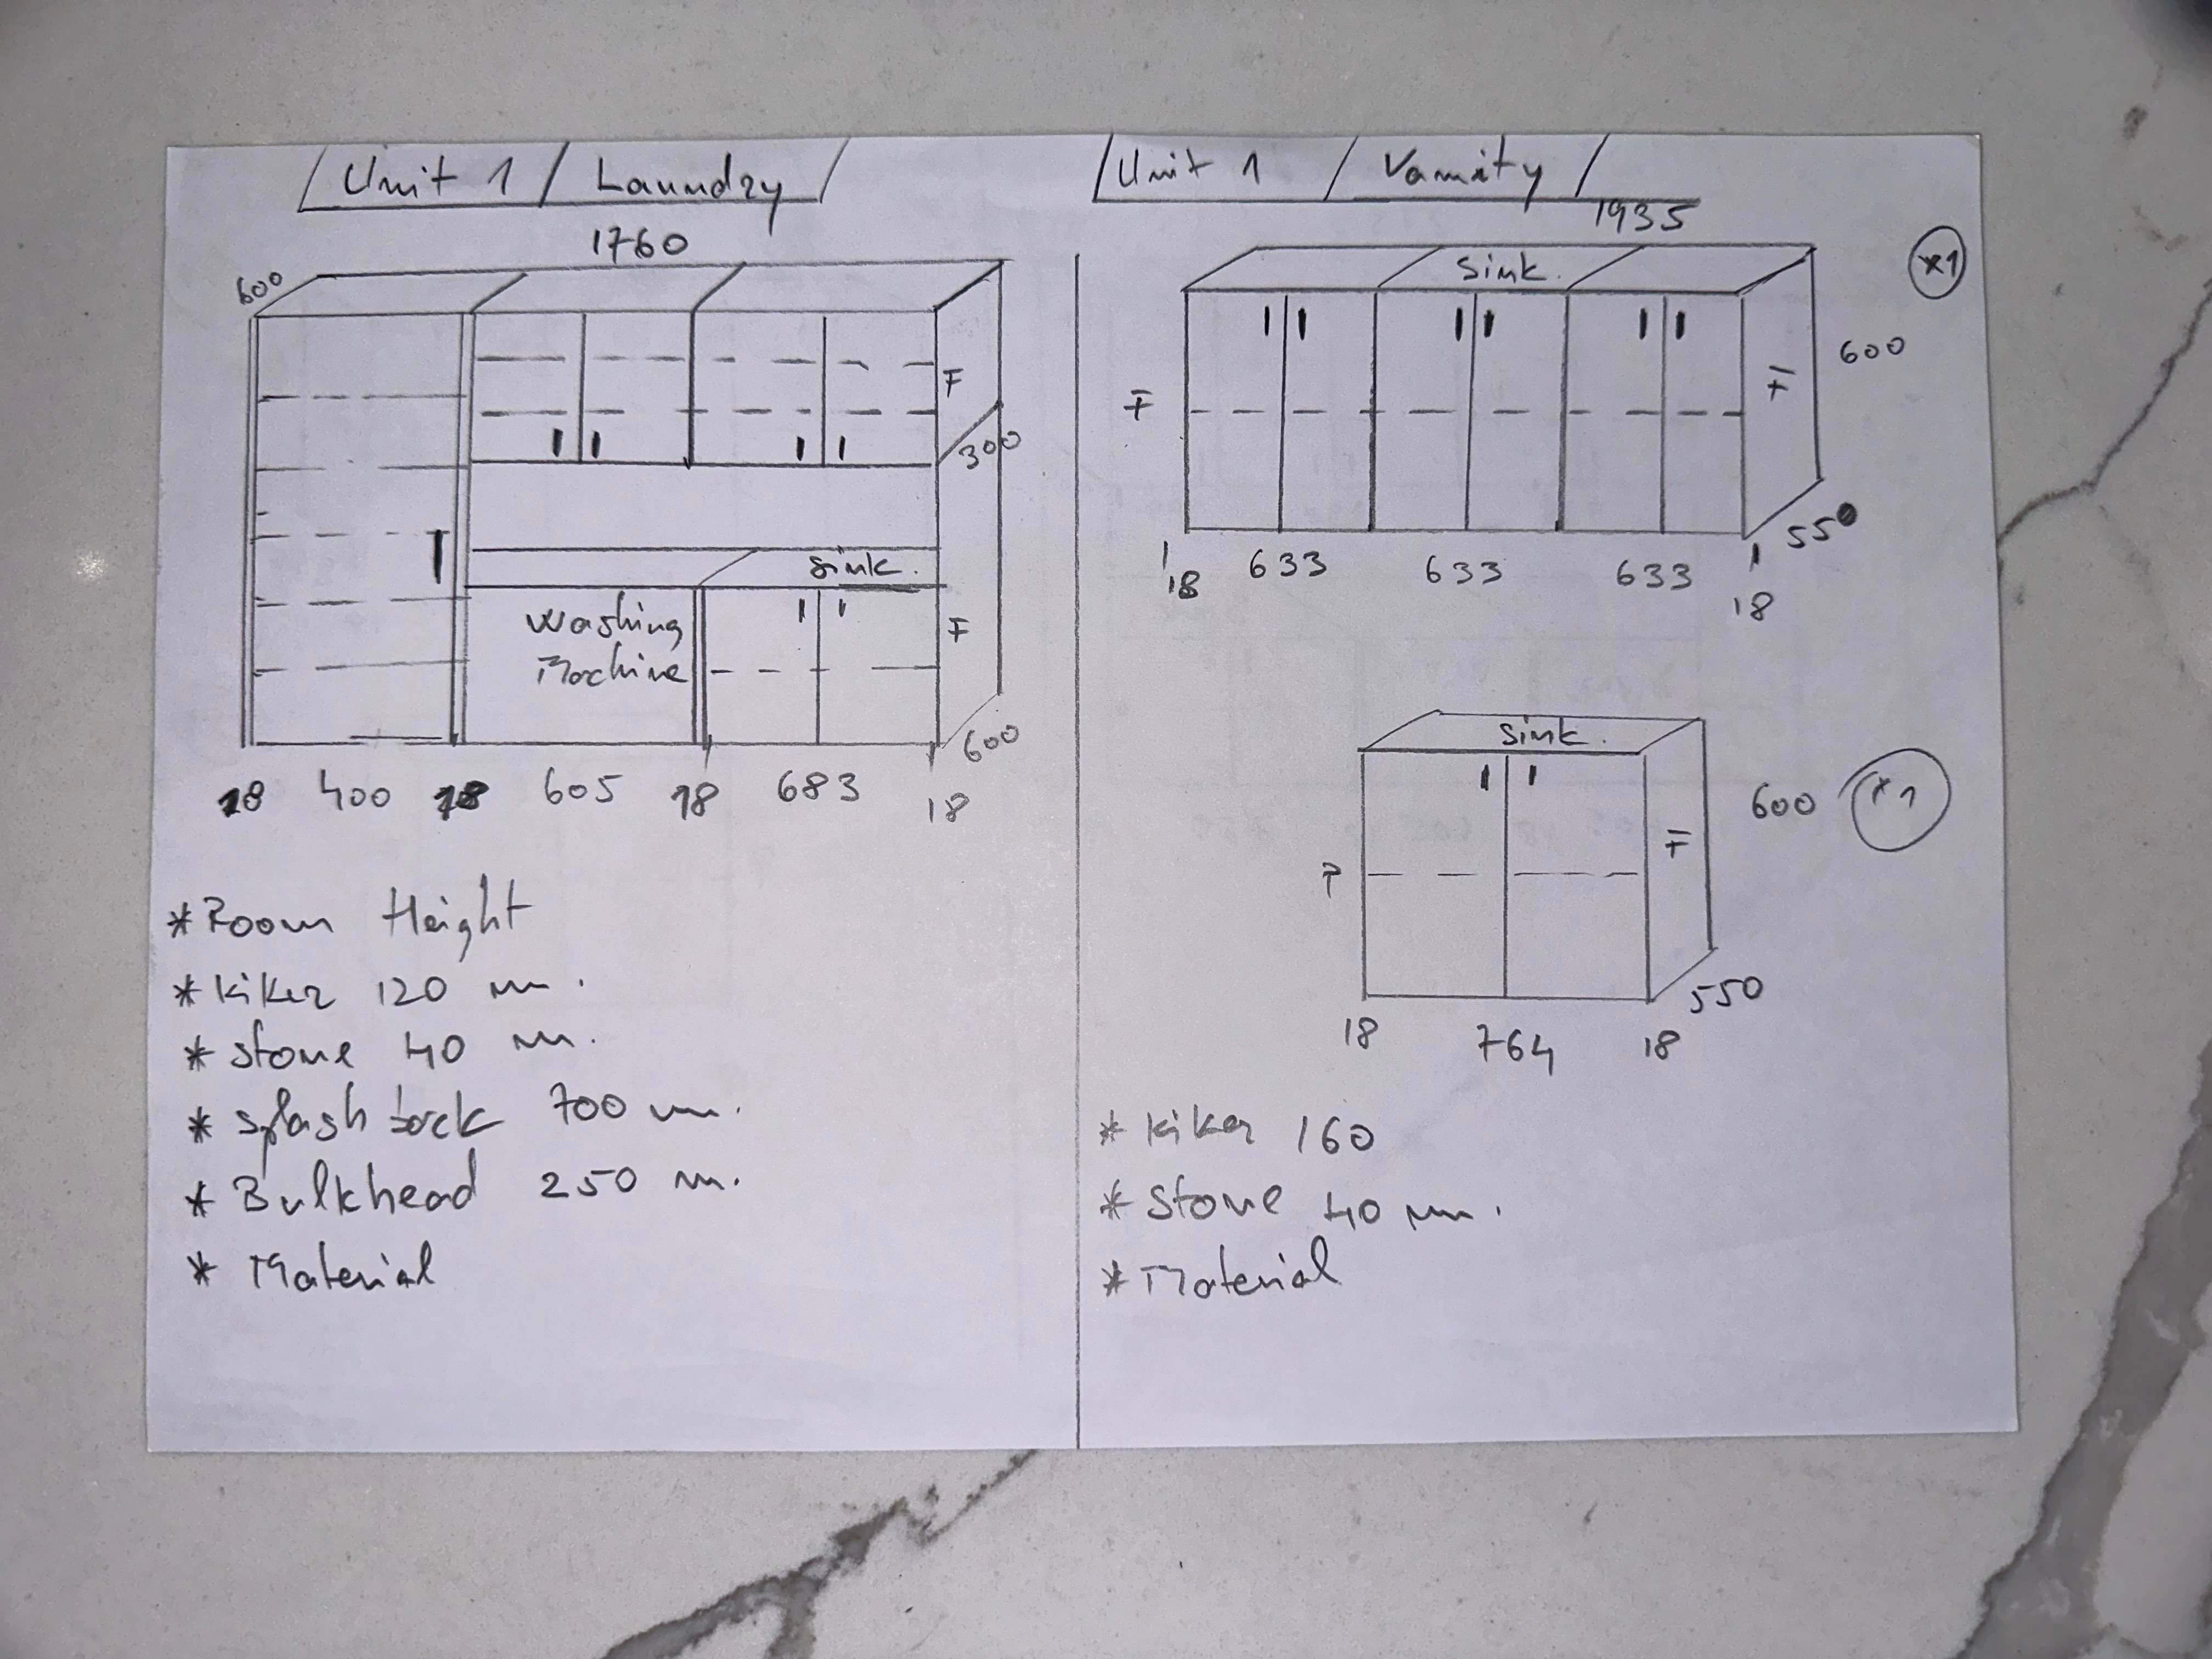 Unit 1 / Laundry
1760
600
F
300
sink.
Washing
Machine
F
600
18 400 18 605 18 683 18
*Room Height
*Kiker 120 mm.
*stone 40 mm.
*splash back 700 mm.
*Bulkhead 250 mm.
*Material
Unit 1 / Vanity
1935
x1
sink.
600
F
F
550
18 633 633 633 18
sink.
600 x1
F
F
550
18 764 18
*Kiker 160
*Stone 40 mm.
*Material